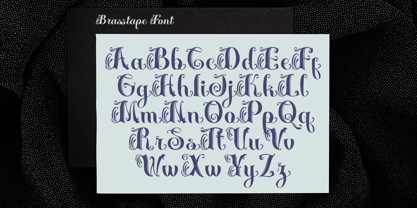 Brasstape Font
AaBbCcDdEeFf
GgHhIiJjKkLl
MmNnOoPpQq
RrSsTtUuVv
WwXxYyZz